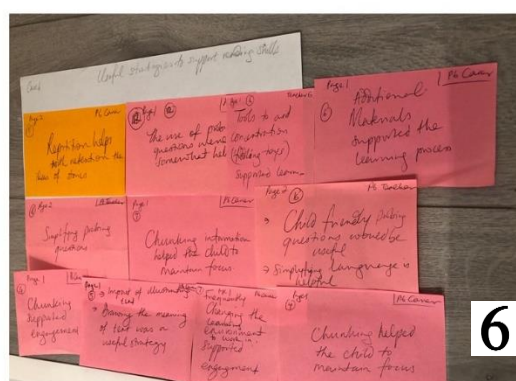 Useful strategies to support reading skills
Page 2
P6 Carer
Repetition helps
with retention
of focus
Page 1
The use of
questions were
somewhat
Tools to aid
concentration
supported
Page 1
P6 Carer
6
Additional
Materials
supported the
learning process
Page 2
Simplifying probing
questions
Page 1
P6 Carer
Chunking information
helped the child to
maintain focus
Page 2
6
P6 Teacher
Child friendly probing
questions would be
useful
→ Simplifying language is
helpful
Page 1
P6 Carer
Chunking
supported
engagement
Page 1
impact of
the meaning
of text was a
useful strategy
frequently
Changing the
environment
to work in
supported
engagement
Page 1
P6 Carer
Chunking helped
the child to
maintain focus
6